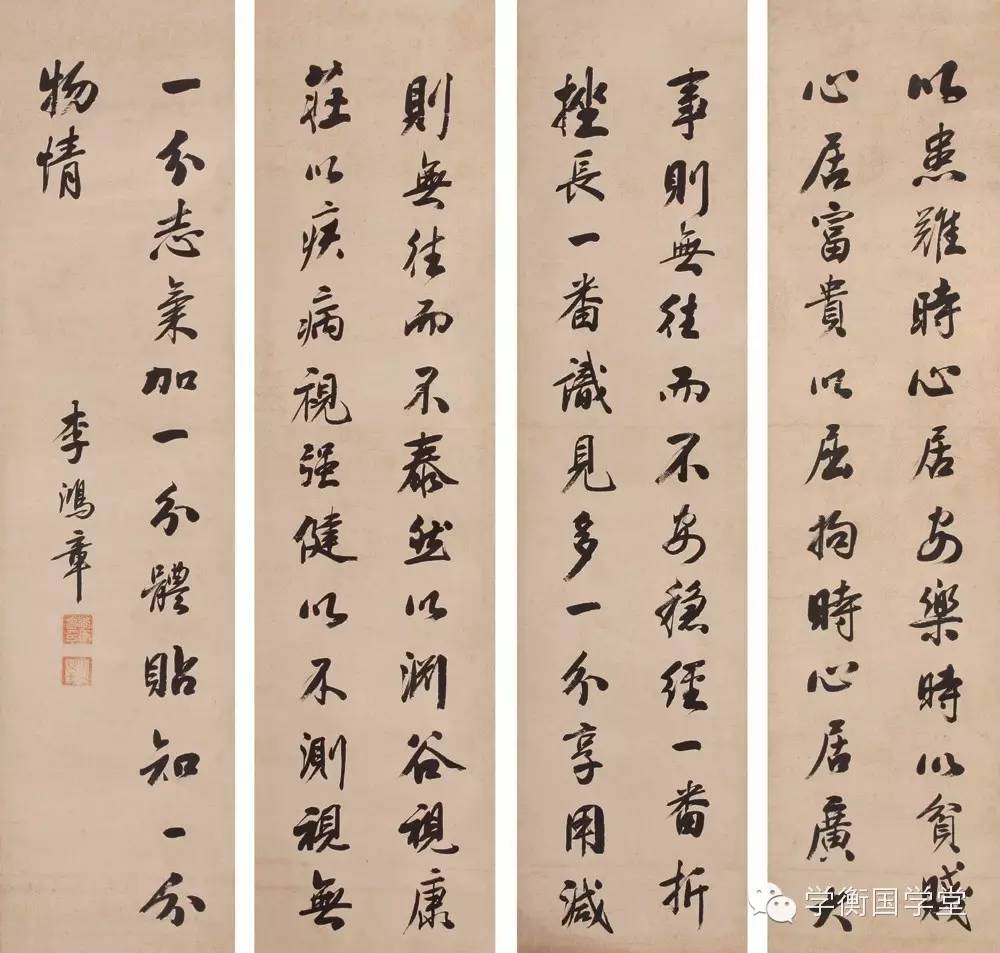 以患難時心居安樂時以貧賤
心居富貴以屈拘時心居廣大
事則無往而不安穩經一番折
挫長一番識見多一分享用減
則無往而不泰然以淵谷視康
莊以疾病視强健以不測視無
一分志氣加一分體貼知一分
物情
李鴻章
学衡国学堂